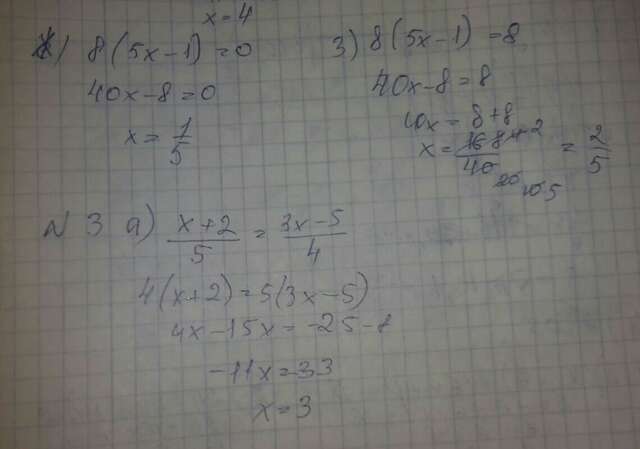 x=4
8(5x-1)=0
40x-8=0
x=1/5
3) 8(5x-1)=8
40x-8=8
40x=8+8
x=16 8 4 2/40 20 10 5 = 2/5
N 3 a) x+2/5 = 3x-5/4
4(x+2)=5(3x-5)
4x-15x=-25-8
-11x=33
x=3